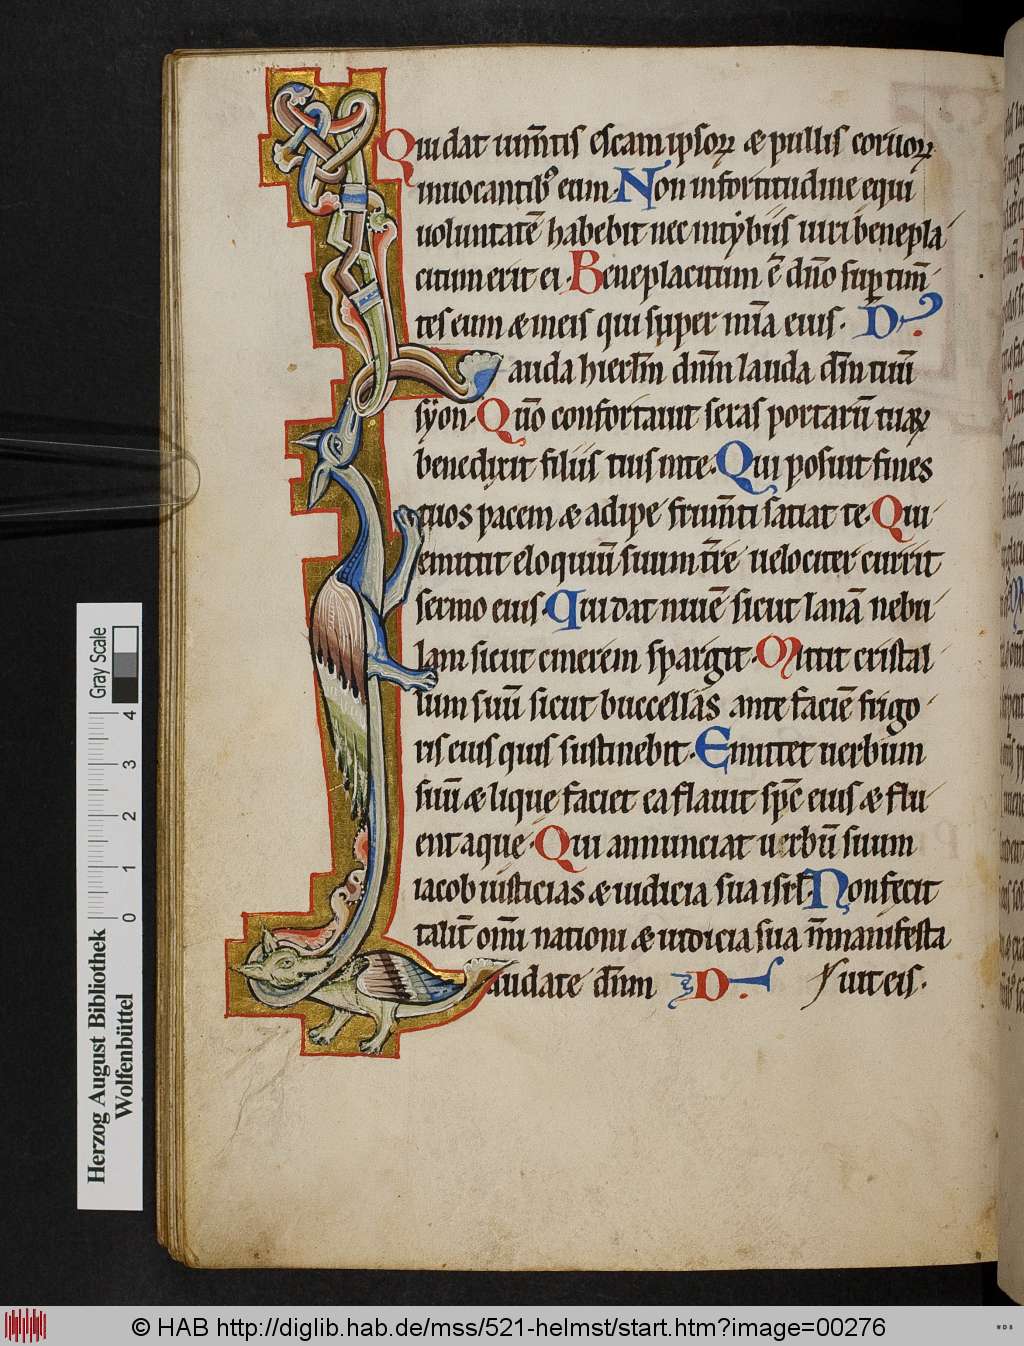 Qui dat ium̄tis escam ipsoꝝ & pullis coruoꝝ·
inuocantib⁹ eum· Non in fortitudine equi
uoluntatē habebit nec in tẏbiis uiri benepla
citum erit ei· Beneplacitum ē dn̄o sup tim̄
tes eum & in eis qui sꝑer mīa eius· D·
auda hierlm̄ dn̄m lauda dm̄ tuū
sẏon· Qūo confortauit seras portarū tuaꝝ
benedixit filiis tuis in te· Qui posuit fines
tuos pacem & adipe frum̄ti satiat te· Qui
emittit eloquiū suum tr̄e uelociter currit
sermo eius· Qui dat niuē sicut lanā nebu
lam sicut cinerem spargit· Mittit cristal
lum suū sicut buccellas ante faciē frigo
ris eius quis sustinebit· Emittet uerbum
suū & liquefaciet ea flauit sp̄c eius & flu
ent aque· Qui annunciat uerbū suum
iacob iusticias & iudicia sua isrl̄· Non fecit
talit̄ om̄i nationi & iudicia sua n̄ manifesta
audate dn̄m D· uit eis·
Gray Scale
4
3
2
1
0
Herzog August Bibliothek
Wolfenbüttel
© HAB http://diglib.hab.de/mss/521-helmst/start.htm?image=00276